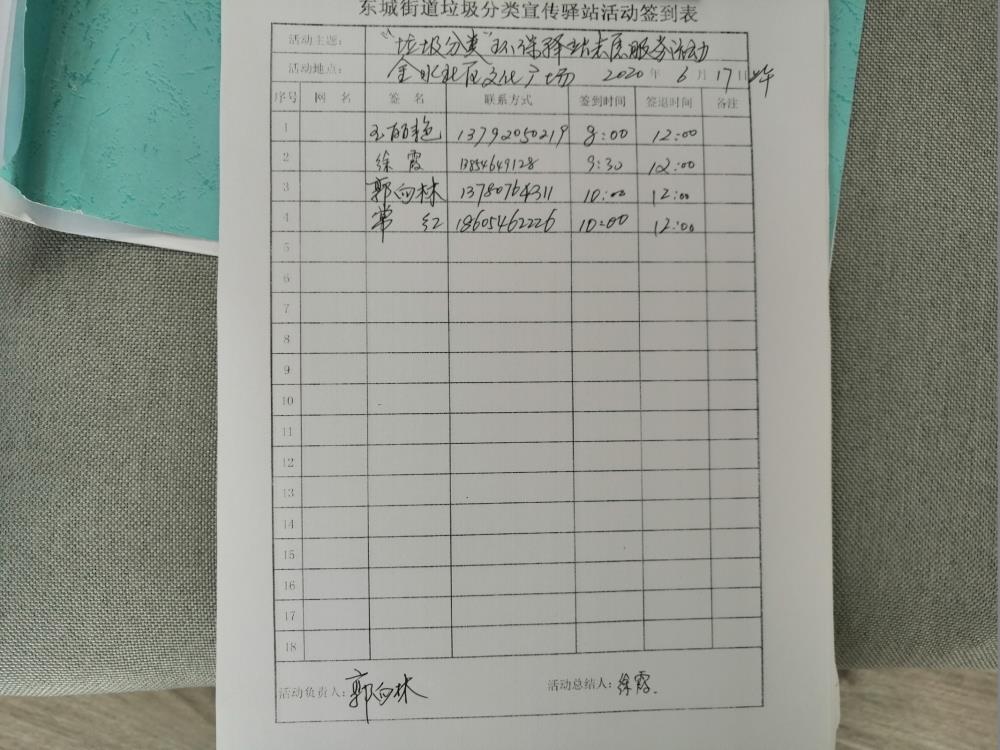 东城街道垃圾分类宣传驿站活动签到表
活动主题： “垃圾分类”环保驿站志愿服务活动
活动地点： 金水社区文化广场 2020年6月17日
序号 网 名 签 名 联系方式 签到时间 签退时间 备注
1 13792050219 8:00 12:00
2 徐霞 13854649128 9:30 12:00
3 郭向林 13780764311 10:00 12:00
4 常红 18605462226 10:00 12:00
5
6
7
8
9
10
11
12
13
14
15
16
17
18
活动负责人：郭向林 活动总结人：徐霞.